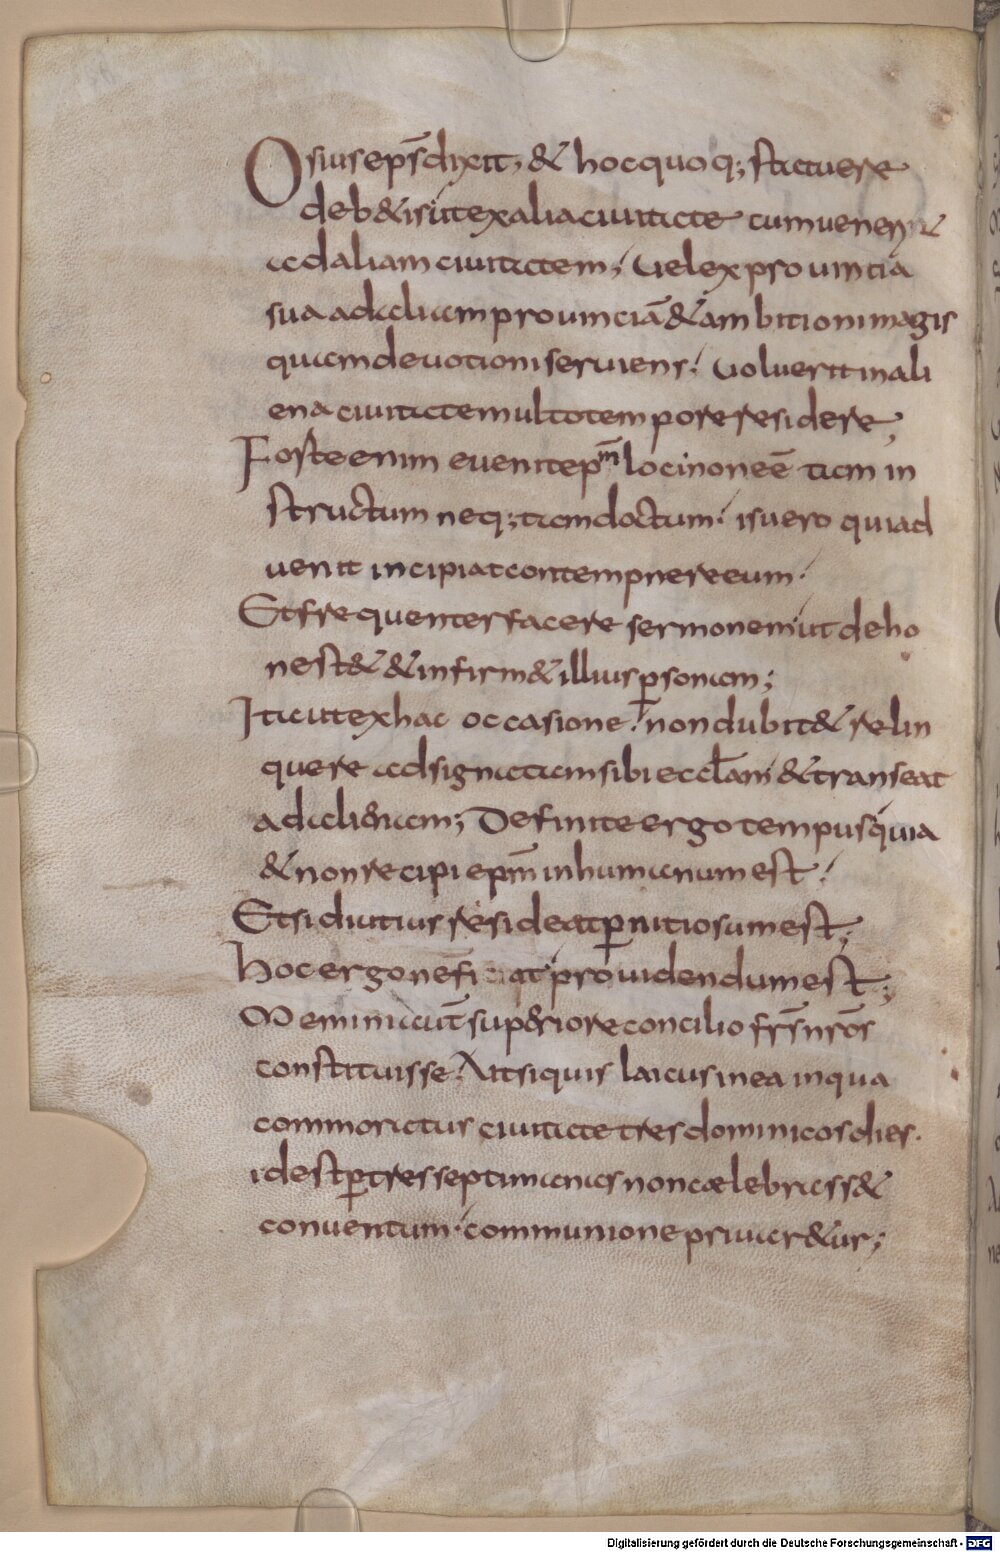 Osius ep̄s dixit; & hoc quoq; statuere
deb&is ut ex alia ciuitate cum uenerit
ad aliam ciuitatem; Uel ex prouincia
sua ad aliam prouinciā & ambitioni magis
quam deuotioni seruiens; Uoluerit in ali
ena ciuitate multo tempore residere;
Forte enim euenit ep̄m loci non eē tam in
structum neq; tam doctum; is uero qui ad
uenit incipiat contempnere eum;
Et frequenter facere sermonem ut deho
nest& & infirm& illius p̲sonam;
Ita ut ex hac occasione non dubit& relin
quere adsignatam sibi eccl̄am & transeat
ad aliẽnam; Definite ergo tempus quia
& non recipi ep̄m inhumanum est;
Et si diutius resideat p̲nitiosum est;
hoc ergo ne fiat prouidendum est;
Memini aut̄ superiore concilio fr̄s nr̄os
constituisse. Ut si quis laicus in ea in qua
commoratus ciuitate tres dominicos dies.
id est p̲ tres septimanas non cælebrass&
conuentum. communione priuar&ur;
Digitalisierung gefördert durch die Deutsche Forschungsgemeinschaft - DFG